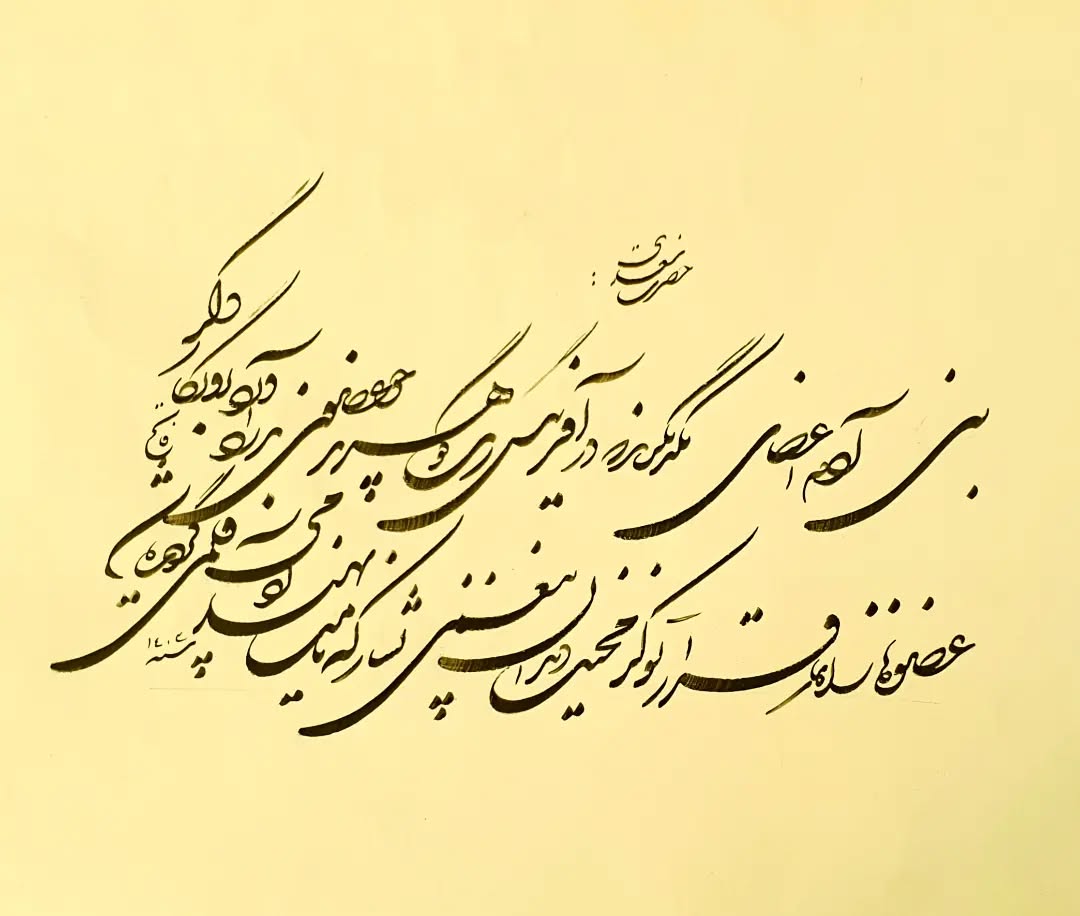 حضرت سعدی :
بنی آدم اعضای یکدیگرند در آفرینش ز یک گوهرند چو عضوی بدرد آورد روزگار دگر
عضوها را نماند قرار تو کز محنت دیگران بی غمی نشاید که نامت نهند آدمی
قلمی گردید
۱۴۰۳